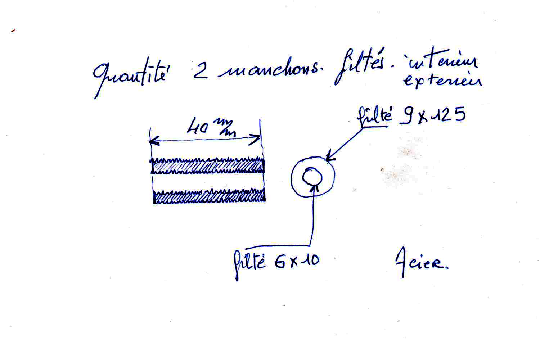 Quantité 2 manchons. filtés. intérieur
extérieur
filté 9x125
40 m/m
filté 6x10
Acier.